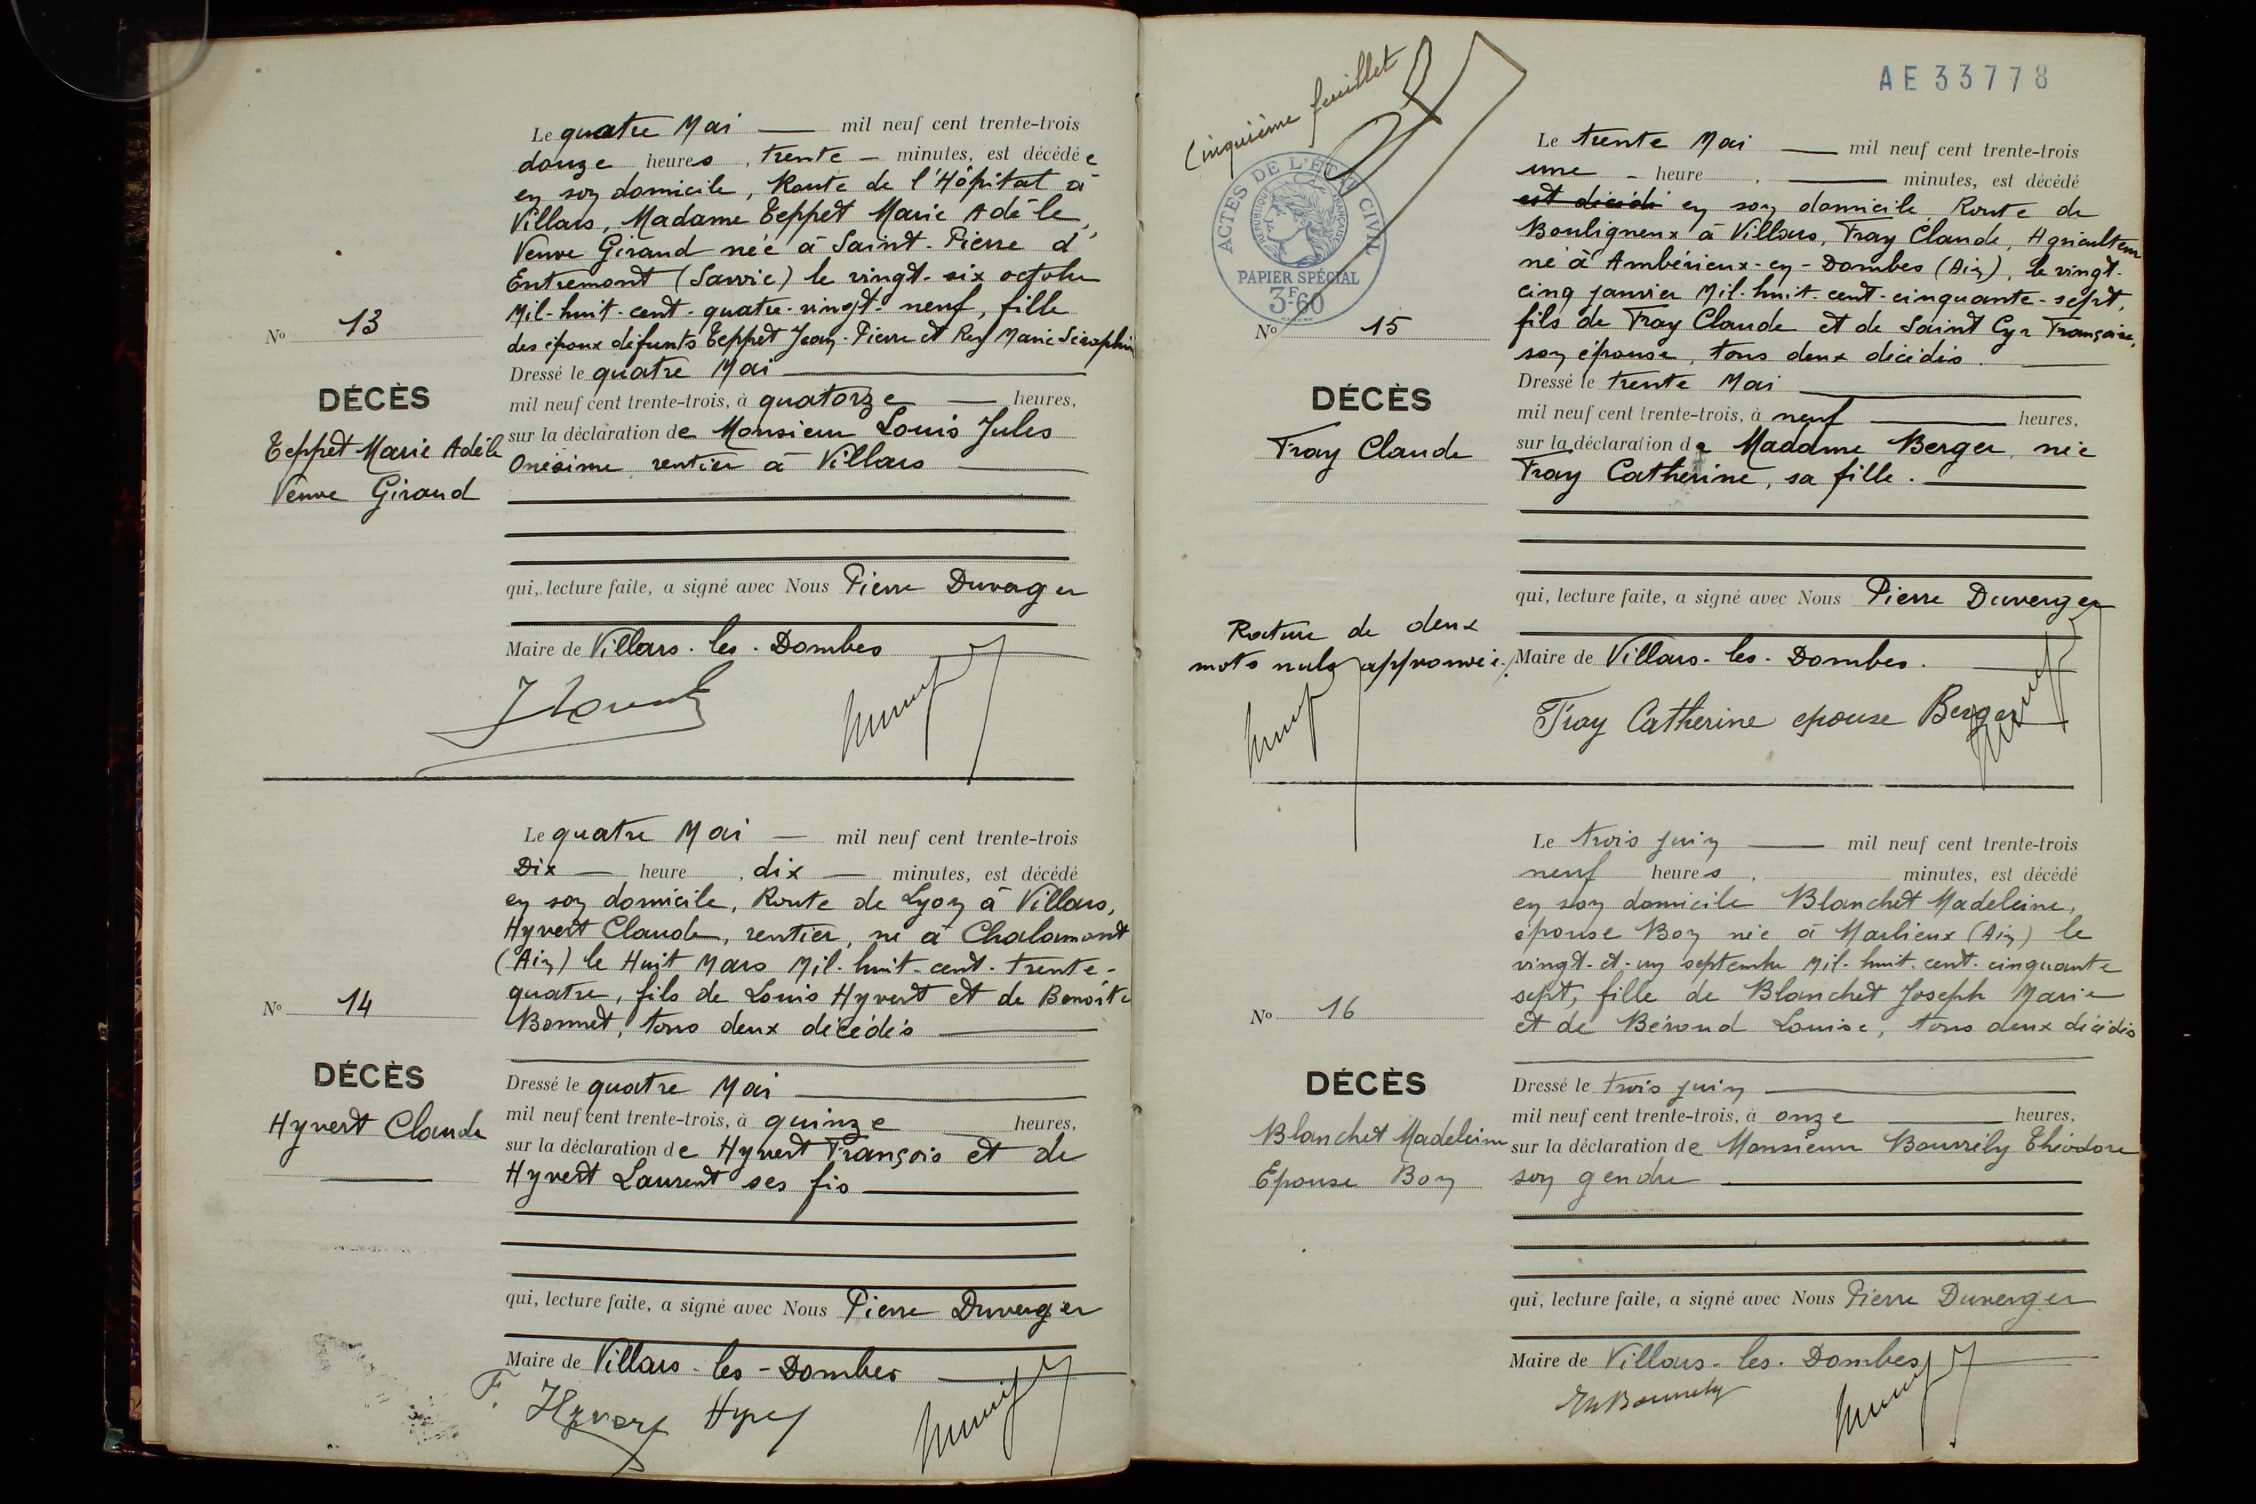 Le quatre Mai — mil neuf cent trente-trois
douze heures, trente — minutes, est décédée
en son domicile, Route de l'Hôpital à
Villars, Madame Teppet Marie Adèle,
Veuve Girand née à Saint-Pierre d'
Entremont (Savoie) le vingt-six octobre
Mil-huit-cent-quatre-vingt-neuf, fille
des époux défunts Teppet Jean-Pierre et Rey Marie Séraphin
Nº 13
DÉCÈS
Teppet Marie Adèle
Veuve Girand
Dressé le quatre Mai
mil neuf cent trente-trois, à quatorze — heures,
sur la déclaration de Monsieur Louis Jules
Onésime rentier à Villars
qui, lecture faite, a signé avec Nous Pierre Duverger
Maire de Villars-les-Dombes
Le quatre Mai — mil neuf cent trente-trois
Dix — heure, dix — minutes, est décédé
en son domicile, Route de Lyon à Villars,
Hyvert Claude, rentier, né à Chalamont
(Ain) le Huit Mars Mil-huit-cent-trente-
quatre, fils de Louis Hyvert et de Benoîte
Bonnet, tous deux décédés
Nº 14
DÉCÈS
Hyvert Claude
Dressé le quatre Mai
mil neuf cent trente-trois, à quinze heures,
sur la déclaration de Hyvert François et de
Hyvert Laurent ses fis
qui, lecture faite, a signé avec Nous Pierre Duverger
Maire de Villars-les-Dombes
F. Hyvert
Cinquième feuillet
AE33778
ACTES DE L'ÉTAT CIVIL
RÉPUBLIQUE FRANÇAISE
PAPIER SPÉCIAL
3F60
Le trente Mai — mil neuf cent trente-trois
une - heure, — minutes, est décédé
est décédé en son domicile, Route de
Bouligneux à Villars, Fray Claude, Agriculteur
né à Ambérieux-en-Dombes (Ain), le vingt-
cinq janvier Mil-huit-cent-cinquante-sept,
fils de Fray Claude et de Saint Cyr Françoise,
son épouse, tous deux décédés.
Nº 15
DÉCÈS
Fray Claude
Dressé le trente Mai
mil neuf cent trente-trois, à neuf heures,
sur la déclaration de Madame Berger, née
Fray Catherine, sa fille.
qui, lecture faite, a signé avec Nous Pierre Duverger
Maire de Villars-les-Dombes.
Rature de deux
mots nuls approuvée.
Fray Catherine epouse Berger
Le trois juin — mil neuf cent trente-trois
neuf heures, minutes, est décédé
en son domicile Blanchet Madeleine,
épouse Boy née à Marlieux (Ain) le
vingt-et-un septembre Mil-huit-cent-cinquante
sept, fille de Blanchet Joseph Marie
et de Béroud Louise, tous deux décédés
Nº 16
DÉCÈS
Blanchet Madeleine
Epouse Boy
Dressé le trois juin
mil neuf cent trente-trois, à onze heures,
sur la déclaration de Monsieur Bourrély Théodore
son gendre
qui, lecture faite, a signé avec Nous Pierre Duverger
Maire de Villars-les-Dombes